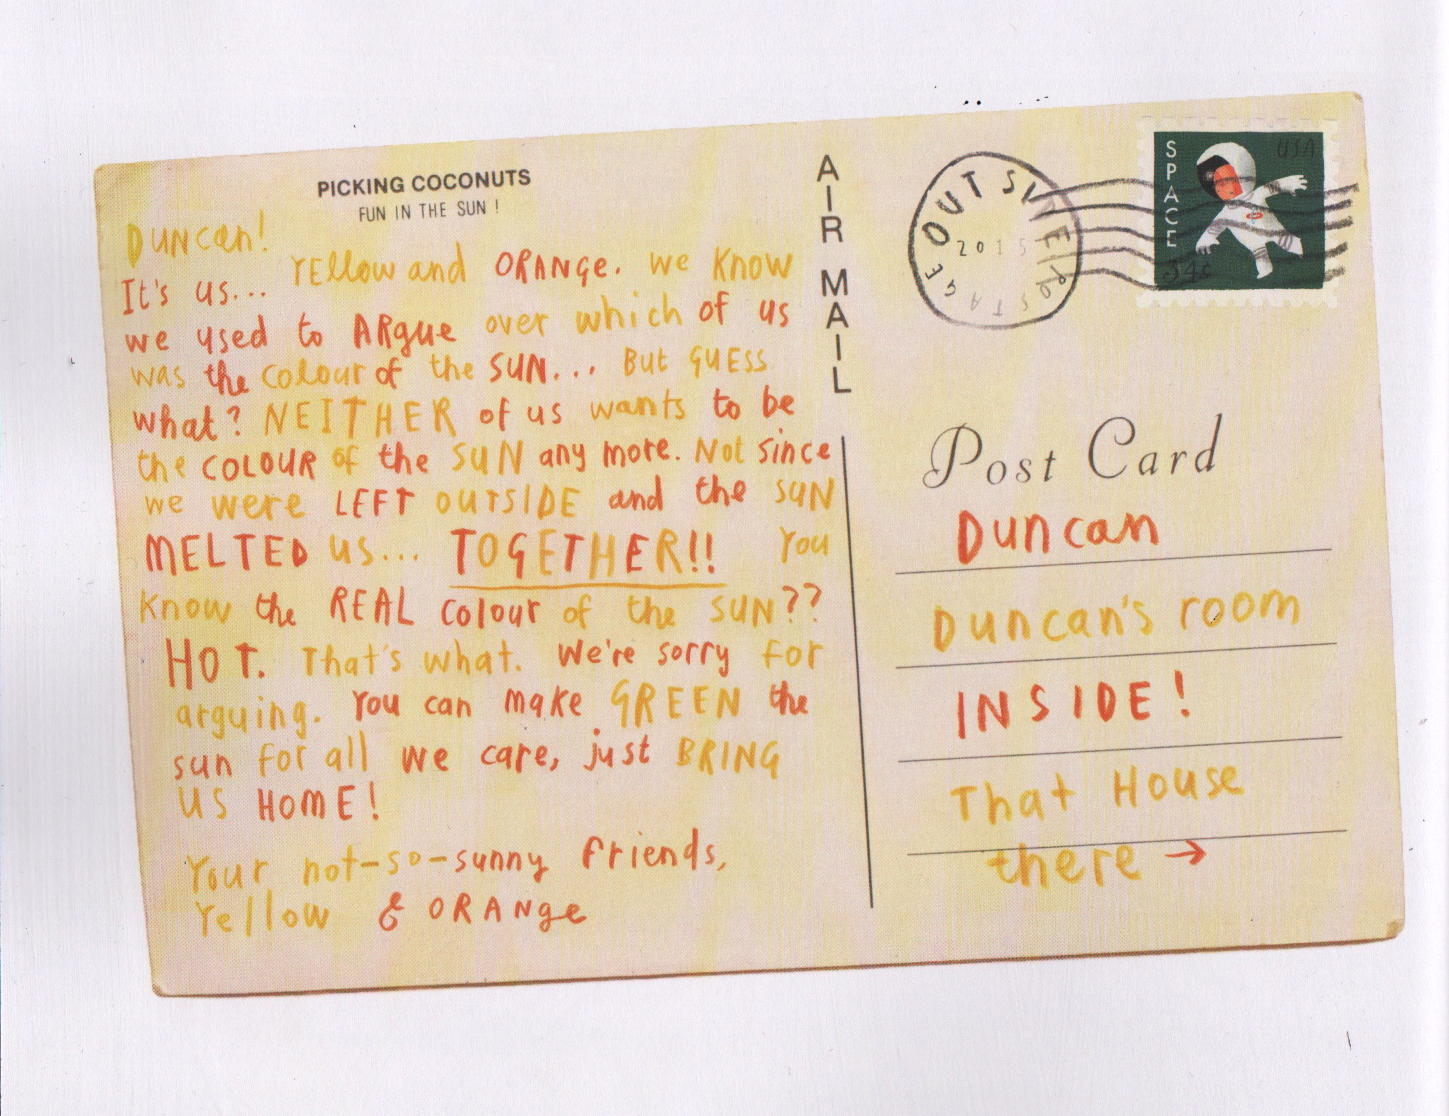 PICKING COCONUTS
FUN IN THE SUN !
DUNCan!
It's us... YEllow and ORANGe. we Know
we used to ARgue over which of us
was the colour of the SUN... But GUESS
what? NEITHER of us wants to be
the COLOUR of the SUN any more. Not since
we were LEFT OUTSIDE and the SUN
MELTED us... TOGETHER!! You
know the REAL colour of the SUN??
HOT. That's what. We're sorry for
arguing. You can make GREEN the
sun for all we care, just BRING
US HOME!
Your not-so-sunny friends,
Yellow & ORANge
AIR MAIL
OUTSIDE POSTAGE
2015
SPACE
USA
34c
Post Card
Duncan
Duncan's room
INSIDE!
That House
there →